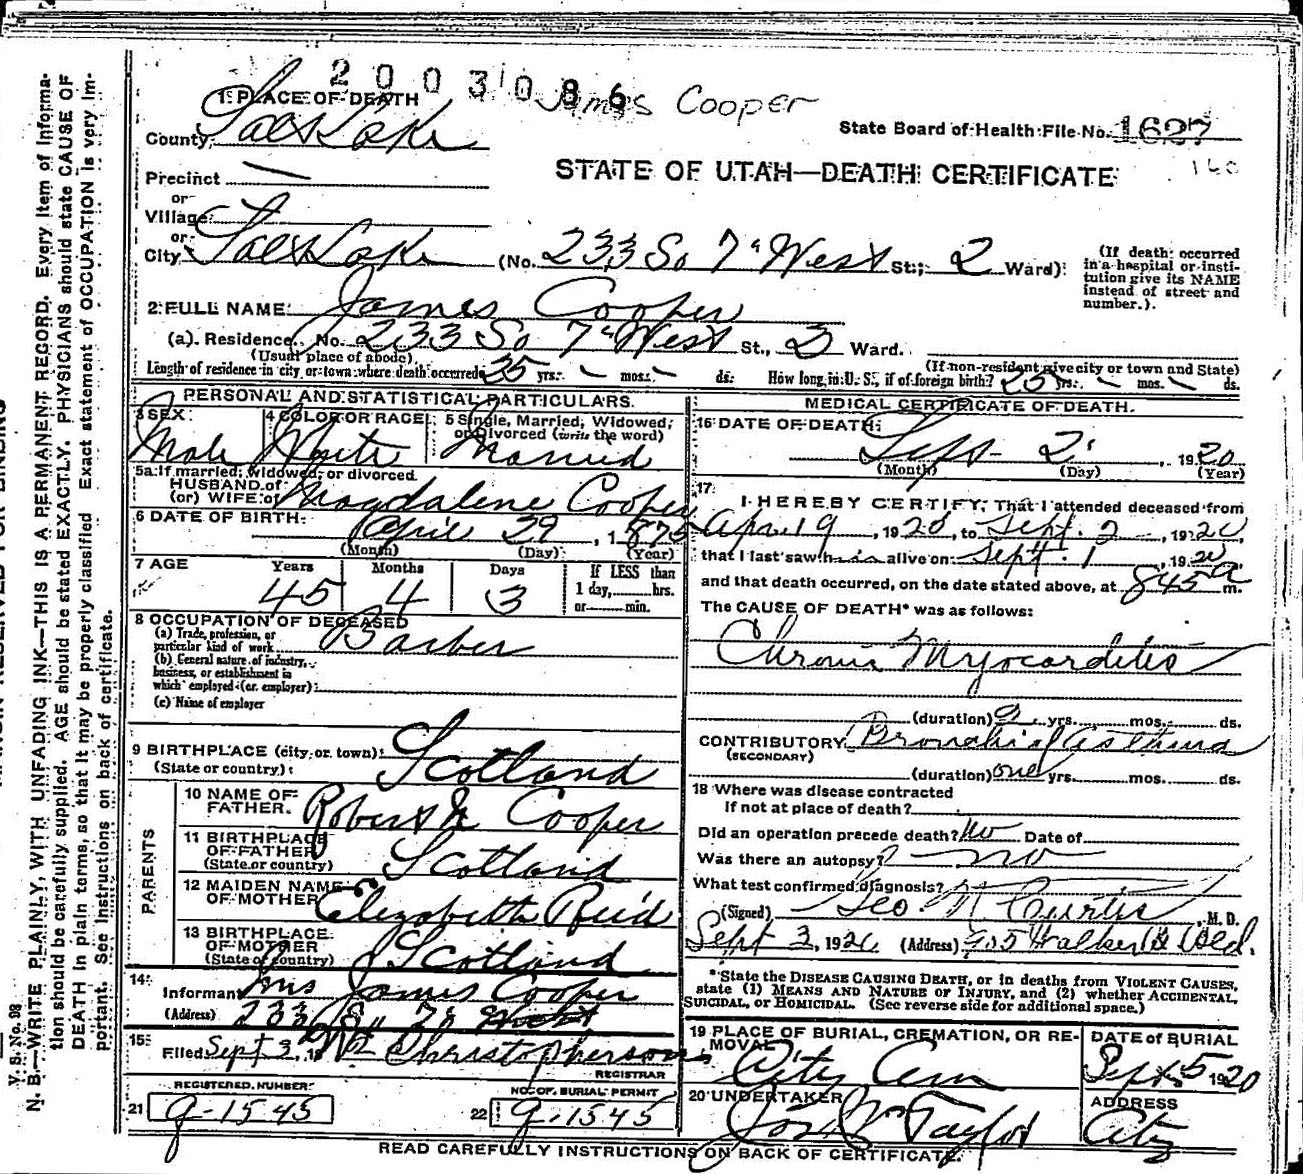 2003086
James Cooper
1 PLACE OF DEATH
County Salt Lake
State Board of Health File No. 1627
160
STATE OF UTAH—DEATH CERTIFICATE
Precinct —
or
Village
or
City Salt Lake (No. 233 So 7" West St.; 2 Ward)
(If death occurred in a hospital or institution give its NAME instead of street and number.)
2 FULL NAME James Cooper
(a). Residence. No. 233 So 7" West St., 2 Ward.
(Usual place of abode) (If non-resident give city or town and State)
Length of residence in city or town where death occurred 35 yrs. – mos. – ds. How long in U. S., if of foreign birth? yrs. – mos. – ds.
PERSONAL AND STATISTICAL PARTICULARS.
3 SEX Male
4 COLOR OR RACE White
5 Single, Married, Widowed, or Divorced (write the word) Married
5a If married, widowed, or divorced
HUSBAND of
(or) WIFE of Magdalene Cooper
6 DATE OF BIRTH April 29, 1875
(Month) (Day) (Year)
7 AGE Years 45 Months 4 Days 3
If LESS than 1 day, hrs. or min.
8 OCCUPATION OF DECEASED
(a) Trade, profession, or particular kind of work Barber
(b) General nature of industry, business, or establishment in which employed (or employer)
(c) Name of employer
9 BIRTHPLACE (city or town)
(State or country) Scotland
PARENTS
10 NAME OF FATHER Robert Cooper
11 BIRTHPLACE OF FATHER
(State or country) Scotland
12 MAIDEN NAME OF MOTHER Elizabeth Reid
13 BIRTHPLACE OF MOTHER
(State or country) Scotland
14
Informant Mrs James Cooper
(Address) 233 So 7" West
15
Filed Sept 3, Christopherson
REGISTRAR
REGISTERED NUMBER
21 g-1545
NO. OF BURIAL PERMIT
22 g-1545
MEDICAL CERTIFICATE OF DEATH.
16 DATE OF DEATH
Sept- 2, 1920
(Month) (Day) (Year)
17
I HEREBY CERTIFY, That I attended deceased from
Apr 19, 1920, to Sept. 2, 1920,
that I last saw him alive on Sept. 1, 1920
and that death occurred, on the date stated above, at 845 a m.
The CAUSE OF DEATH* was as follows:
Chronic Myocarditis
(duration) yrs. mos. ds.
CONTRIBUTORY Bronchial asthma
(SECONDARY)
(duration) one yrs. mos. ds.
18 Where was disease contracted
if not at place of death?
Did an operation precede death? No Date of
Was there an autopsy? no
What test confirmed diagnosis?
(Signed) Geo. W Curtis, M. D.
Sept 3, 1920 (Address) 905 Walker B Bld.
*State the DISEASE CAUSING DEATH, or in deaths from VIOLENT CAUSES,
state (1) MEANS AND NATURE OF INJURY, and (2) whether ACCIDENTAL,
SUICIDAL, or HOMICIDAL. (See reverse side for additional space.)
19 PLACE OF BURIAL, CREMATION, OR REMOVAL City Cem
DATE of BURIAL Sept 5 1920
20 UNDERTAKER Jos Wm Taylor
ADDRESS City
READ CAREFULLY INSTRUCTIONS ON BACK OF CERTIFICATE.
V. S. No. 98
N. B.—WRITE PLAINLY, WITH UNFADING INK—THIS IS A PERMANENT RECORD. Every item of informa-
tion should be carefully supplied. AGE should be stated EXACTLY. PHYSICIANS should state CAUSE OF
DEATH in plain terms, so that it may be properly classified. Exact statement of OCCUPATION is very im-
portant. See instructions on back of certificate.